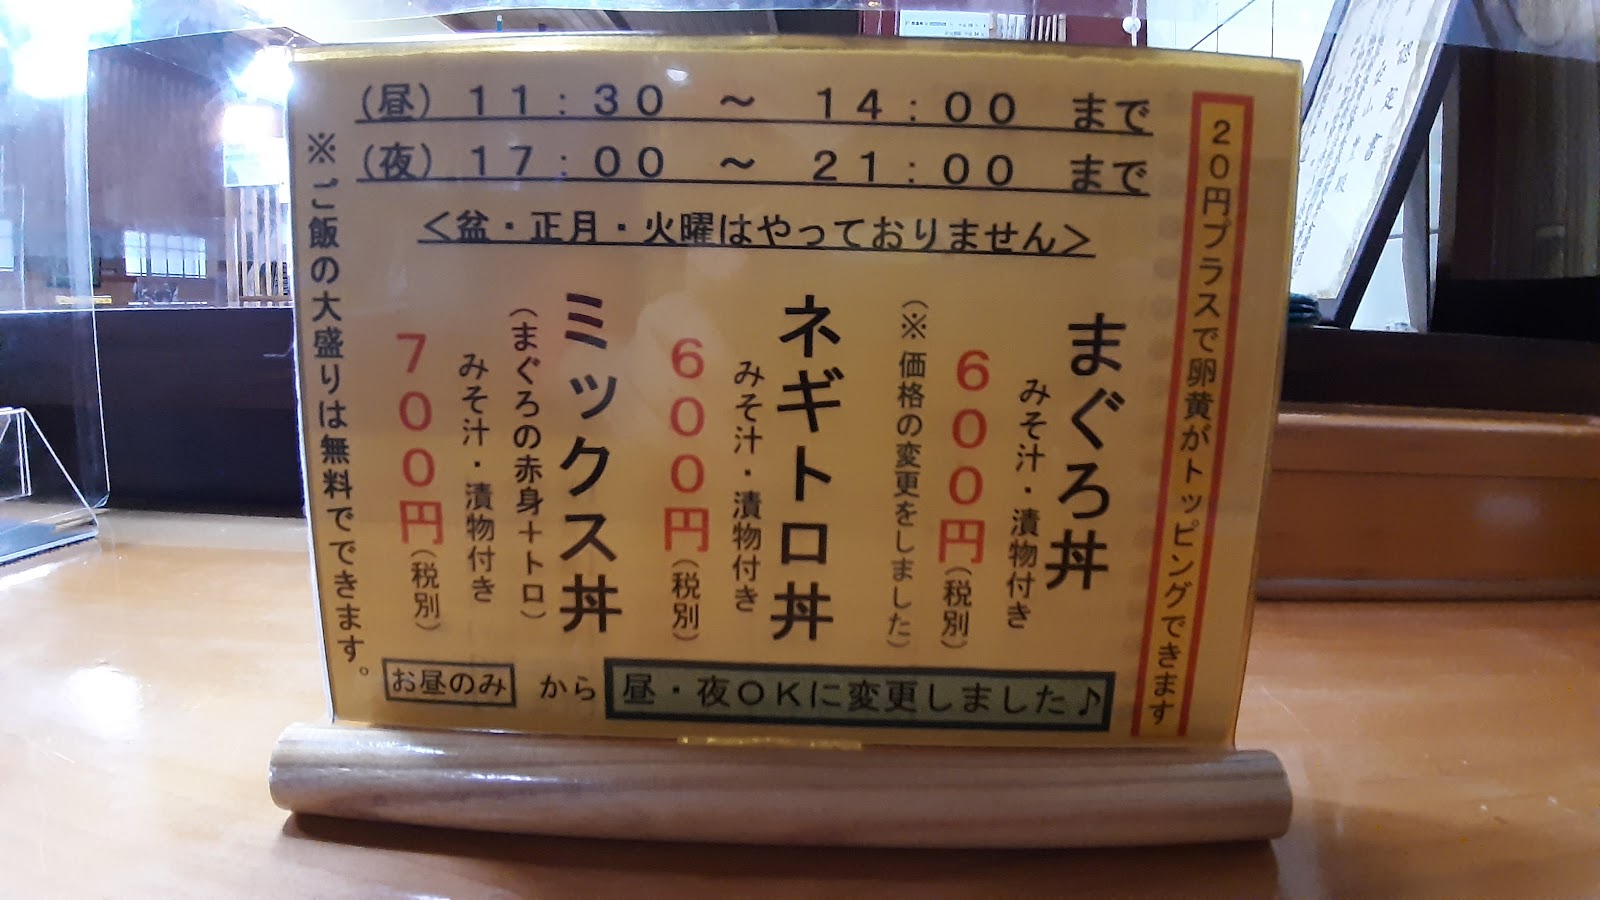 (昼) 11:30 ～ 14:00 まで
(夜) 17:00 ～ 21:00 まで
<盆・正月・火曜はやっておりません>
20円プラスで卵黄がトッピングできます
まぐろ丼
みそ汁・漬物付き
600円(税別)
(※価格の変更をしました)
ネギトロ丼
みそ汁・漬物付き
600円(税別)
ミックス丼
(まぐろの赤身＋トロ)
みそ汁・漬物付き
700円(税別)
※ご飯の大盛りは無料でできます。
お昼のみ から 昼・夜OKに変更しました♪
認定書